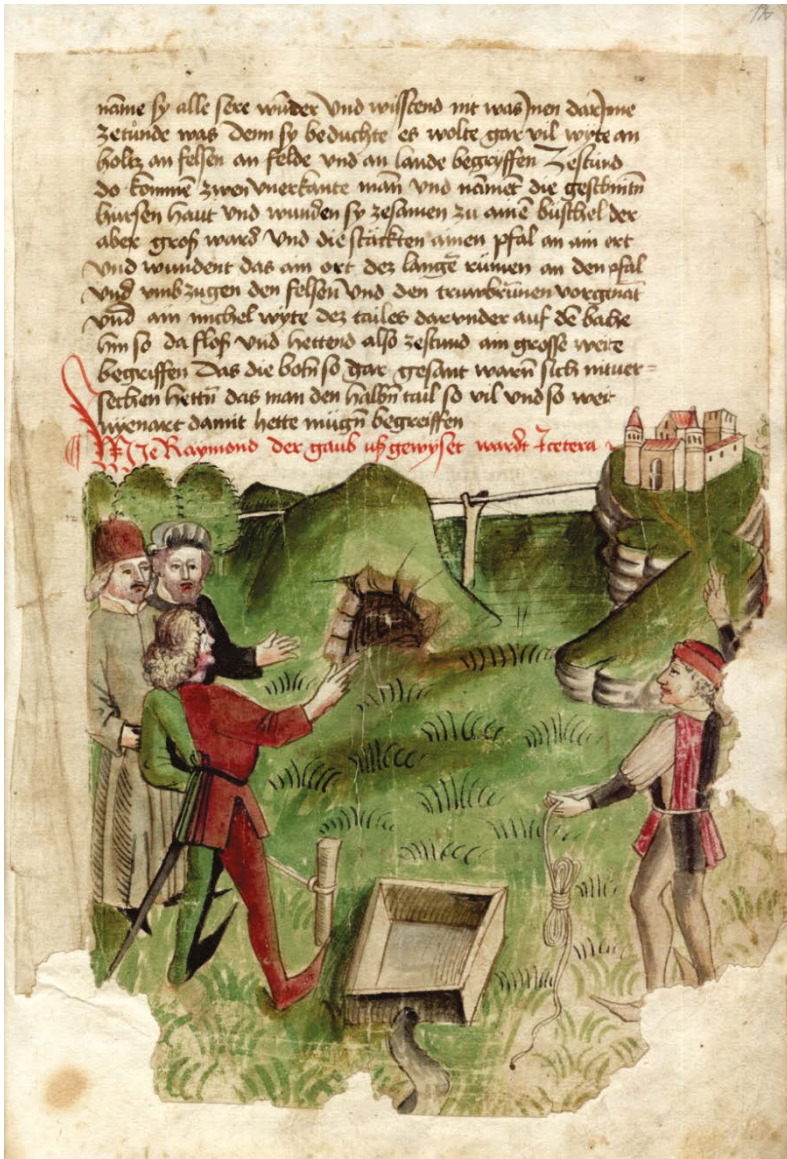 näme sy alle sere wūder vnd wisstend nit was jnen dar jnne
zetünde was denn sy beduchte es wolte gar vil wyte an
holtz an felsen an felde vnd an lande begryffen Zestund
do komme zwen vnerkante man vnd namēt die geschnittn
hirsen haut vnd wunden sy zesamen zu ainē büschel der
aber groß ward vnd die stackten ainen pfal an ain ort
vnd wundent das ain ort dez langē riimen an den pfal
vnd vmbzugen den felsen vnd den vorgenāt
vnd ain michel wyte dez tailes darvnder auf dē bache
hin so da floß vnd hettend also zestund ain grosse weite
begriffen das die botn so gar gesant warn sich ver=
sechen hettn das man den halbn tail so vil vnd so
damit hette mügn begreiffen
Wie Raymond der gaub vß gewyset wardt cetera